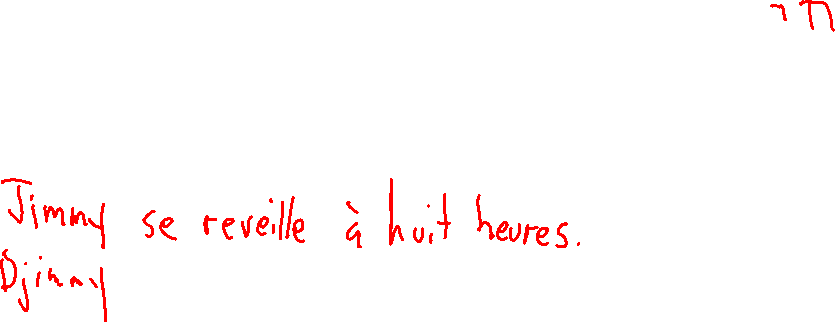 Jimmy se reveille à huit heures.
Djimmy